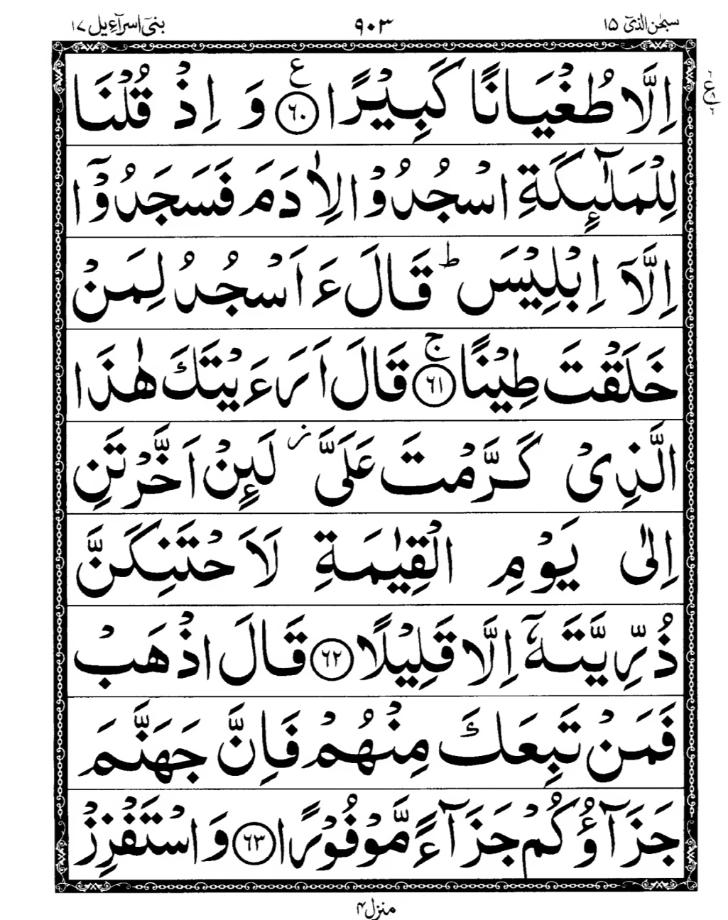 سبحٰن الذیٓ ۱۵ ۹۰۳ بنیٓ اسرآءیل ۱۷
اِلَّا طُغْيَانًا كَبِيْرًا ۶۰ ع وَ اِذْ قُلْنَا
ع
لِلْمَلٰٓئِكَةِ اسْجُدُوْا لِاٰدَمَ فَسَجَدُوْٓا
اِلَّآ اِبْلِيْسَ ؕ قَالَ ءَاَسْجُدُ لِمَنْ
خَلَقْتَ طِيْنًا ۶۱ ج قَالَ اَرَءَيْتَكَ هٰذَا
الَّذِیْ كَرَّمْتَ عَلَیَّ ز لَئِنْ اَخَّرْتَنِ
اِلٰى يَوْمِ الْقِيٰمَةِ لَاَحْتَنِكَنَّ
ذُرِّيَّتَهٗٓ اِلَّا قَلِيْلًا ۶۲ قَالَ اذْهَبْ
فَمَنْ تَبِعَكَ مِنْهُمْ فَاِنَّ جَهَنَّمَ
جَزَآؤُكُمْ جَزَآءً مَّوْفُوْرًا ۶۳ وَ اسْتَفْزِزْ
منزل ۴